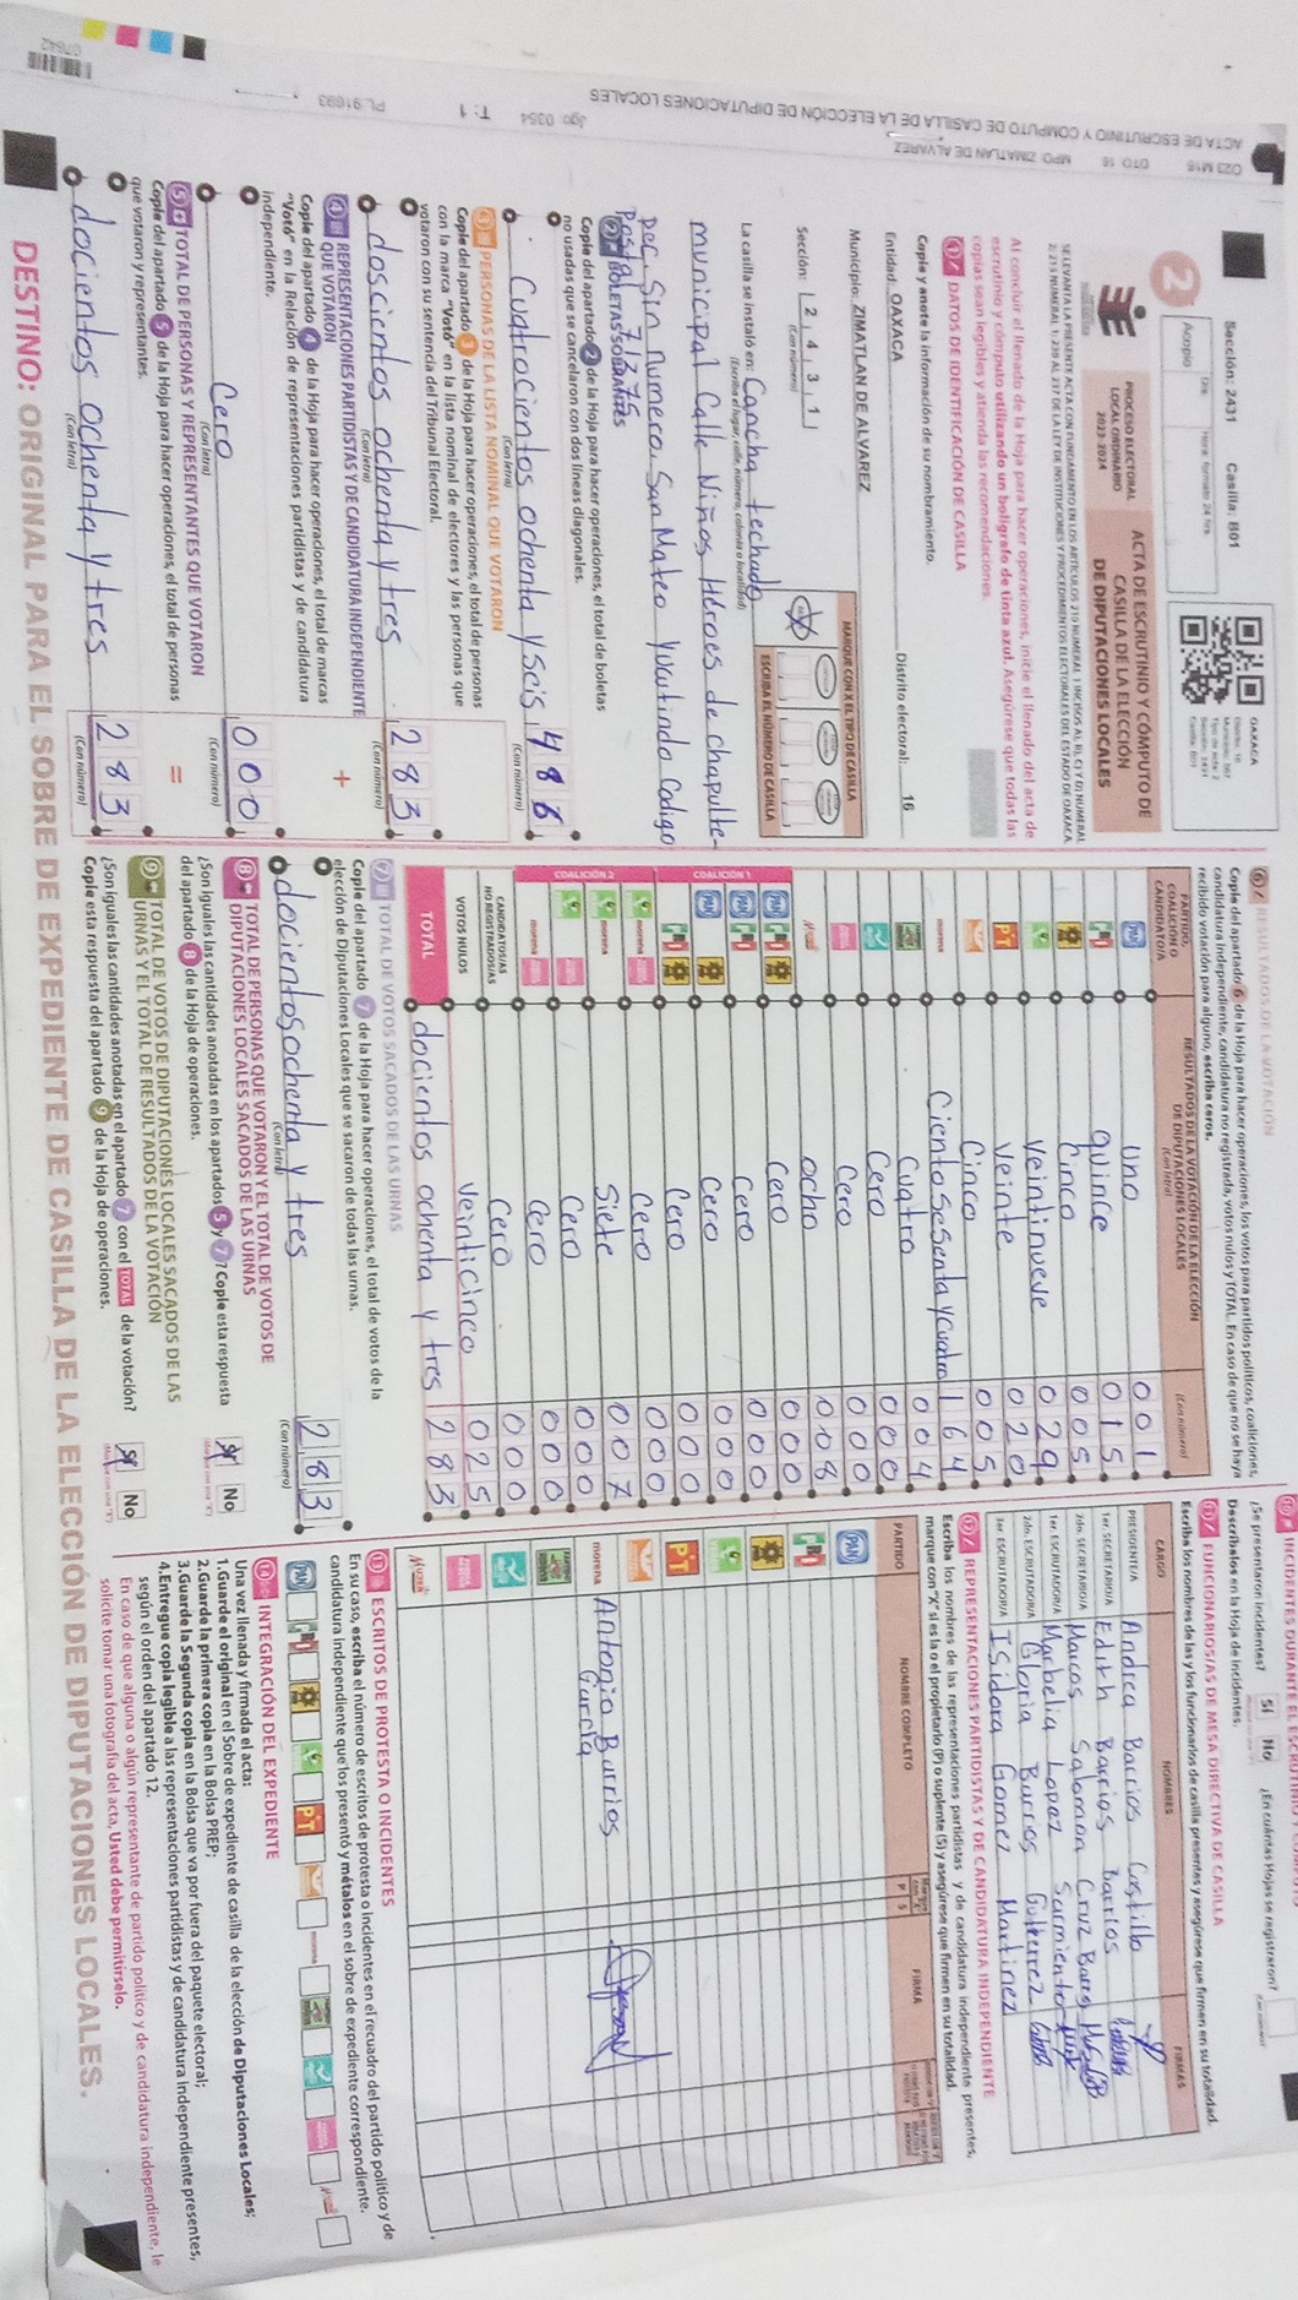 Sección: 2431 Casilla: B01
OAXACA
2
Acopio
PROCESO ELECTORAL
LOCAL ORDINARIO
2023-2024
ACTA DE ESCRUTINIO Y CÓMPUTO DE
CASILLA DE LA ELECCIÓN
DE DIPUTACIONES LOCALES
Al concluir el llenado de la Hoja para hacer operaciones, inicie el llenado del acta de
escrutinio y cómputo utilizando un bolígrafo de tinta azul. Asegúrese que todas las
copias sean legibles y atienda las recomendaciones.
1 DATOS DE IDENTIFICACIÓN DE CASILLA
Copie y anote la información de su nombramiento.
Entidad: OAXACA Distrito electoral: 16
Municipio: ZIMATLAN DE ALVAREZ
MARQUE CON X EL TIPO DE CASILLA
Sección: 2 4 3 1
(Con número)
ESCRIBA EL NÚMERO DE CASILLA
La casilla se instaló en: Cancha techado
(Escriba el lugar, calle, número, colonia o localidad)
municipal Calle Niños Héroes de chapulte-
pec. Sin numero. San Mateo Yucutindo Codigo
Postal 71375
2 BOLETAS SOBRANTES
Copie del apartado 2 de la Hoja para hacer operaciones, el total de boletas
no usadas que se cancelaron con dos líneas diagonales.
Cuatrocientos ochenta y seis 486
(Con letra) (Con número)
3 PERSONAS DE LA LISTA NOMINAL QUE VOTARON
Copie del apartado 3 de la Hoja para hacer operaciones, el total de personas
con la marca "Votó" en la lista nominal de electores y las personas que
votaron con su sentencia del Tribunal Electoral.
doscientos ochenta y tres 283
(Con letra) (Con número)
4 REPRESENTACIONES PARTIDISTAS Y DE CANDIDATURA INDEPENDIENTE
QUE VOTARON +
Copie del apartado 4 de la Hoja para hacer operaciones, el total de marcas
"Votó" en la Relación de representaciones partidistas y de candidatura
independiente.
Cero 000
(Con letra) (Con número)
5 TOTAL DE PERSONAS Y REPRESENTANTES QUE VOTARON =
Copie del apartado 5 de la Hoja para hacer operaciones, el total de personas
que votaron y representantes.
docientos ochenta y tres 283
(Con letra) (Con número)
6 RESULTADOS DE LA VOTACIÓN
Copie del apartado 6 de la Hoja para hacer operaciones, los votos para partidos políticos, coaliciones,
candidatura independiente, candidatura no registrada, votos nulos y TOTAL. En caso de que no se haya
recibido votación para alguno, escriba ceros.
PARTIDO,
COALICIÓN O
CANDIDATO/A
RESULTADOS DE LA VOTACIÓN DE LA ELECCIÓN
DE DIPUTACIONES LOCALES
(Con letra) (Con número)
PAN uno 001
PRI quince 015
PRD Cinco 005
veintinueve 029
PT veinte 020
Cinco 005
morena Ciento Sesenta y cuatro 164
Cuatro 004
Cero 000
Cero 000
ocho 008
COALICIÓN 1
PAN PRI PRD Cero 000
PAN PRI Cero 000
PAN PRD Cero 000
PRI PRD Cero 000
COALICIÓN 2
morena Cero 000
morena Siete 007
Cero 000
morena Cero 000
CANDIDATOS/AS
NO REGISTRADOS/AS Cero 000
VOTOS NULOS veinticinco 025
TOTAL docientos ochenta y tres 283
7 TOTAL DE VOTOS SACADOS DE LAS URNAS
Copie del apartado 7 de la Hoja para hacer operaciones, el total de votos de la
elección de Diputaciones Locales que se sacaron de todas las urnas.
docientos ochenta y tres 283
(Con letra) (Con número)
8 TOTAL DE PERSONAS QUE VOTARON Y EL TOTAL DE VOTOS DE
DIPUTACIONES LOCALES SACADOS DE LAS URNAS
¿Son iguales las cantidades anotadas en los apartados 5 y 7? Copie esta respuesta
del apartado 8 de la Hoja de operaciones.
Sí No
9 TOTAL DE VOTOS DE DIPUTACIONES LOCALES SACADOS DE LAS
URNAS Y EL TOTAL DE RESULTADOS DE LA VOTACIÓN
¿Son iguales las cantidades anotadas en el apartado 7 con el TOTAL de la votación?
Copie esta respuesta del apartado 9 de la Hoja de operaciones.
Sí No
10 INCIDENTES DURANTE EL ESCRUTINIO Y CÓMPUTO
¿Se presentaron incidentes? Sí No ¿En cuántas Hojas se registraron?
Descríbalos en la Hoja de incidentes.
11 FUNCIONARIOS/AS DE MESA DIRECTIVA DE CASILLA
Escriba los nombres de las y los funcionarios de casilla presentes y asegúrese que firmen en su totalidad.
CARGO NOMBRES FIRMAS
PRESIDENTE/A Andrea Barrios Castillo
1er. SECRETARIO/A Edith Barrios Barrios
2do. SECRETARIO/A Marcos Salomon Cruz Barrios
1er. ESCRUTADOR/A Marbelia Lopez Sarmiento
2do. ESCRUTADOR/A Gloria Barrios Gutierrez
3er. ESCRUTADOR/A Isidora Gomez Martinez
12 REPRESENTACIONES PARTIDISTAS Y DE CANDIDATURA INDEPENDIENTE
Escriba los nombres de las representaciones partidistas y de candidatura independiente presentes,
marque con "X" si es la o el propietario (P) o suplente (S) y asegúrese que firmen en su totalidad.
PARTIDO NOMBRE COMPLETO P S FIRMA
PAN
PRI
PT
morena Antonio Barrios
Garcia
13 ESCRITOS DE PROTESTA O INCIDENTES
En su caso, escriba el número de escritos de protesta o incidentes en el recuadro del partido político y de
candidatura independiente que los presentó y métalos en el sobre de expediente correspondiente.
14 INTEGRACIÓN DEL EXPEDIENTE
Una vez llenada y firmada el acta:
1.Guarde el original en el Sobre de expediente de casilla de la elección de Diputaciones Locales;
2.Guarde la primera copia en la Bolsa PREP;
3.Guarde la Segunda copia en la Bolsa que va por fuera del paquete electoral;
4.Entregue copia legible a las representaciones partidistas y de candidatura independiente presentes,
según el orden del apartado 12.
En caso de que alguna o algún representante de partido político y de candidatura independiente, le
solicite tomar una fotografía del acta, Usted debe permitírselo.
DESTINO: ORIGINAL PARA EL SOBRE DE EXPEDIENTE DE CASILLA DE LA ELECCIÓN DE DIPUTACIONES LOCALES.
023 M16 DTO 16 MPO ZIMATLAN DE ALVAREZ
ACTA DE ESCRUTINIO Y COMPUTO DE CASILLA DE LA ELECCIÓN DE DIPUTACIONES LOCALES
Jgo: 0354 T: 1 PL 91693
07642